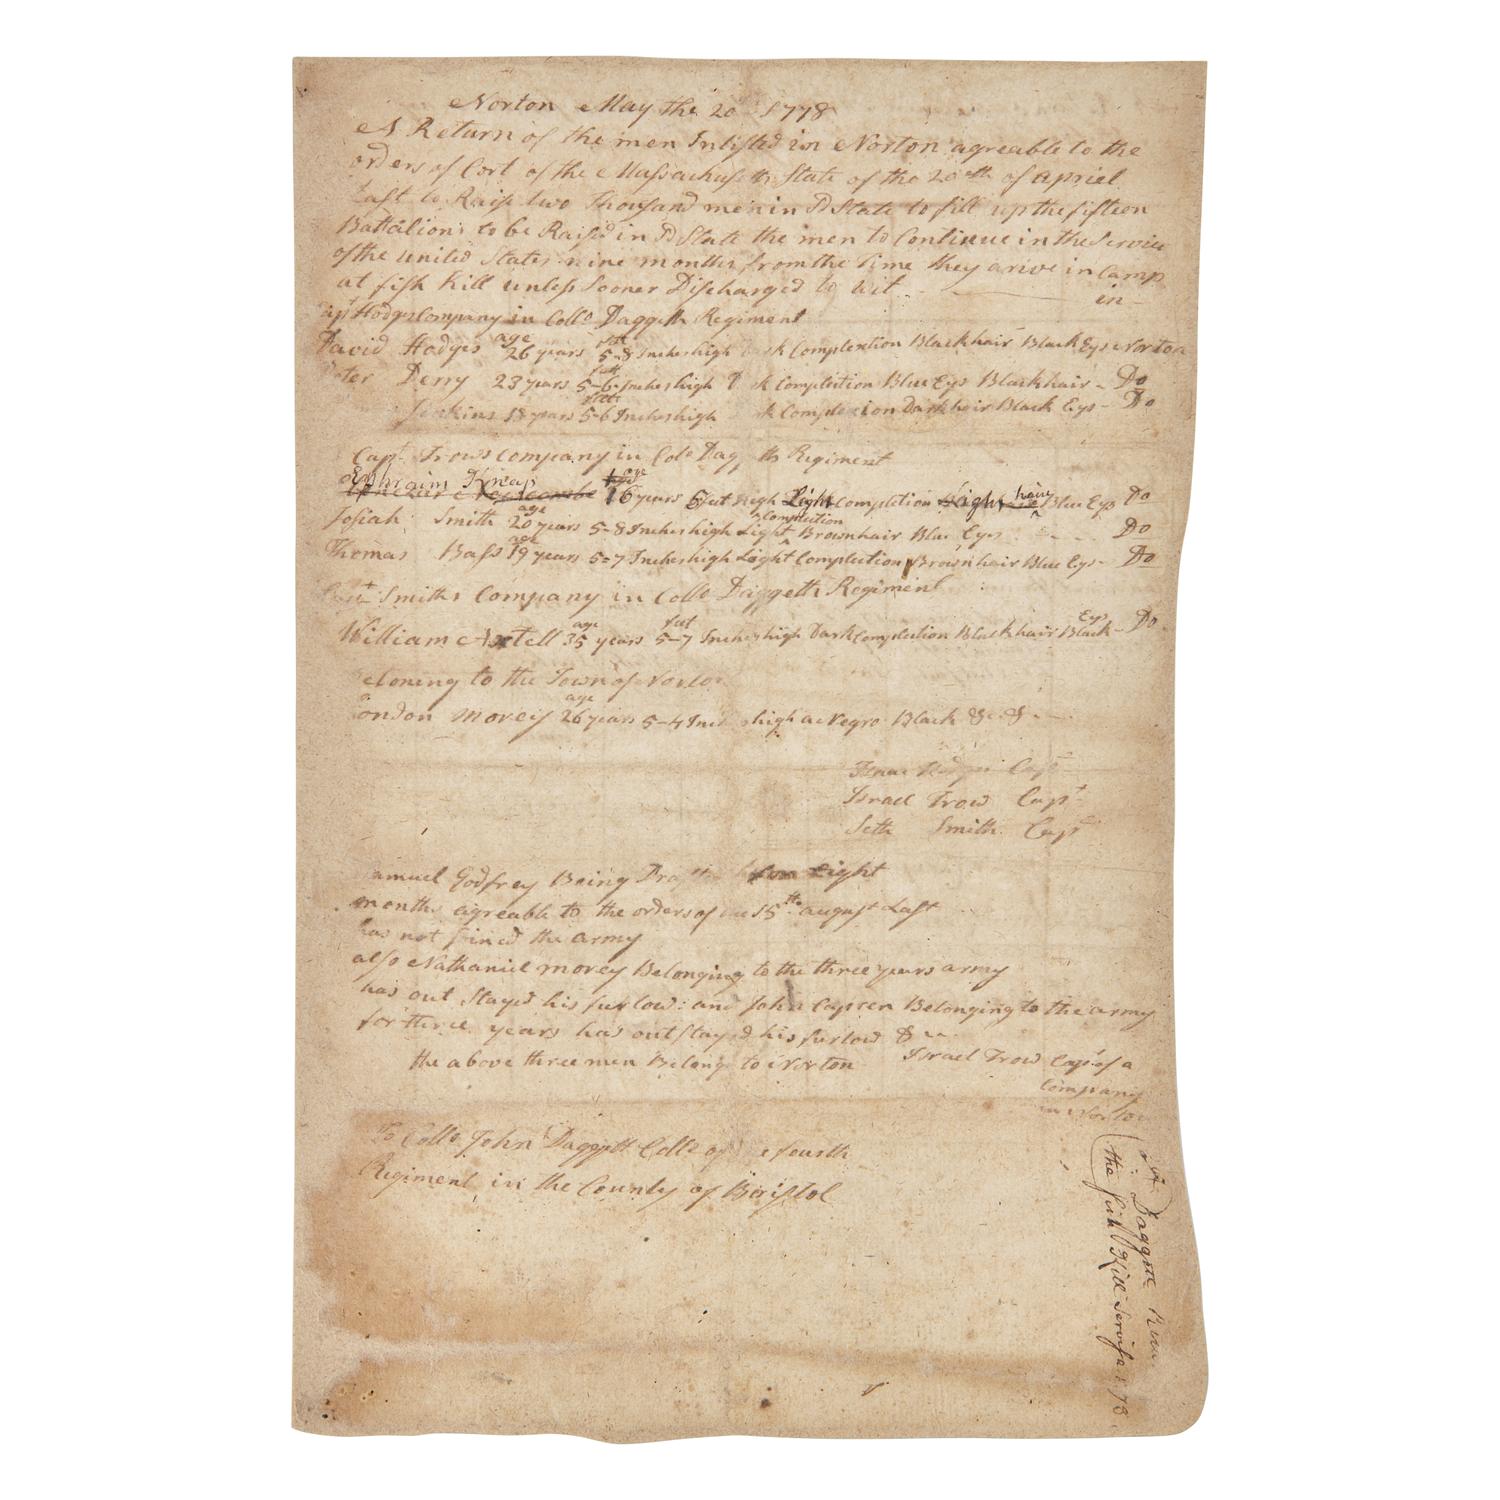 Norton May the 20 1778
A Return of the men Inlisted in Norton agreable to the
orders of Cort of the Massachusetts State of the 20th of Apriel
Last to Raise two Thousand men in sd State to fill up the fifteen
Battalions to be Raised in sd State the men to Continue in the Service
of the united States nine months from the Time they arive in Camp
at fish Kill unless sooner Discharged to wit in
Capt Hodges Company in Collo Daggeth Regiment
David Hodges age 26 years 5-8 Inches high Complextion Black hair Black Eys Norton
Derry 23 years feet 5-6 Inches high Complection Blue Eys Black hair - Do
Jenkins 18 years feet 5-6 Inches high Complexion Dark hair Black Eys - Do
Capt Trows Company in Colo Dag th Regiment
Ephraim Knap age 16 years 6 feet high Light Complection Light hair Blue Eys Do
Josiah Smith age 20 years 5-8 Inches high Light Complection Brown hair Blue Eys Do
Thomas Bass age 19 years 5-7 Inches high Light Complection Brown hair Blue Eys - Do
Capt Smiths Company in Collo Daggeth Regiment
William Axtell age 35 years feet 5-7 Inches high Dark Complection Black hair Black Eys - Do
eloning to the Town of Norton
London Morey age 26 years 5-4 Inc high a Negro Black &c &
Isaac Hodges Capt
Israel Trow Capt
Seth Smith Capt
Samuel Godfrey Being Drafted for Eight
months agreable to the orders of the 15th august Last
has not joined the army
also Nathaniel morey Belonging to the three years army
has out Stayed his furlow: and John Capren Belonging to the army
for three years has outstayed his furlow &
the above three men Belong to Norton Israel Trow Capt of a
Company
in Norton
To Collo John Daggett Collo of the fourth
Regiment in the County of Boristol
Daggett
the fish Kill Servise 178